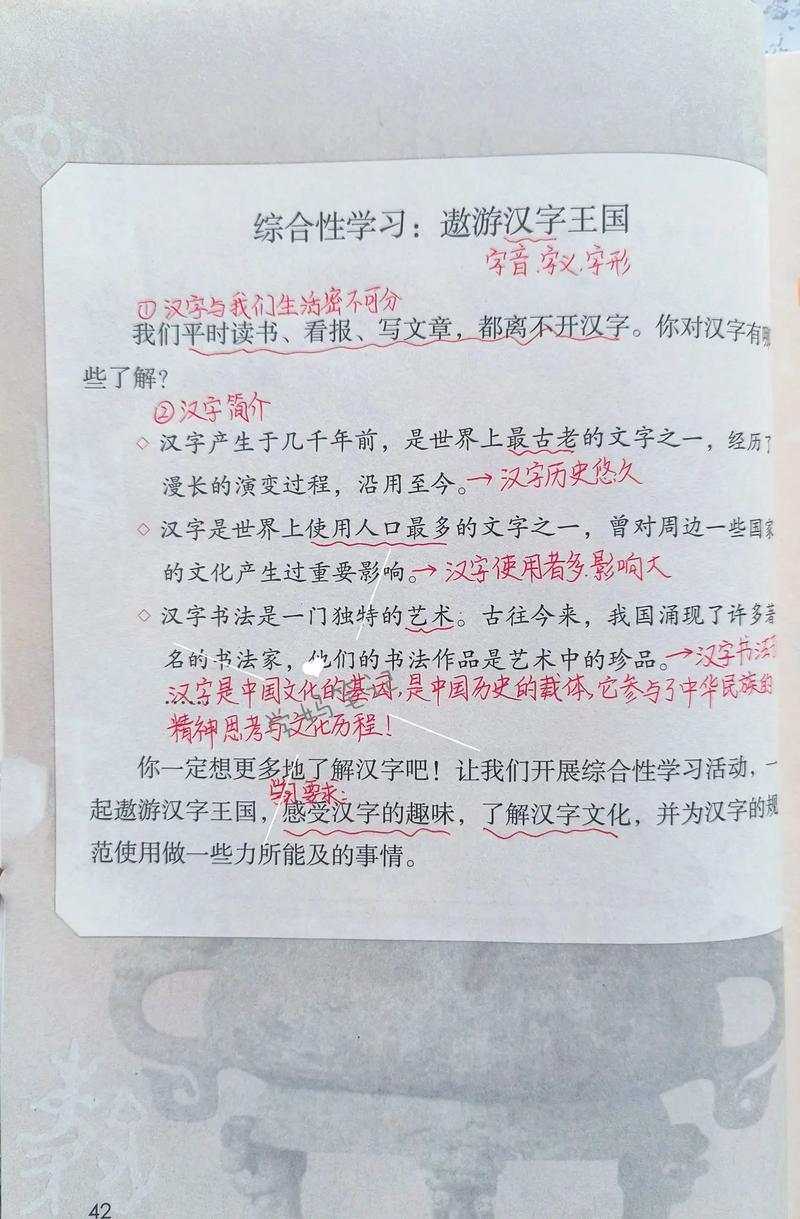 综合性学习：遨游汉字王国
字音.字义.字形
①汉字与我们生活密不可分
我们平时读书、看报、写文章，都离不开汉字。你对汉字有哪
些了解？
②汉字简介
◇ 汉字产生于几千年前，是世界上最古老的文字之一，经历了
漫长的演变过程，沿用至今。→汉字历史悠久
◇ 汉字是世界上使用人口最多的文字之一，曾对周边一些国家
的文化产生过重要影响。→汉字使用者多.影响大
◇ 汉字书法是一门独特的艺术。古往今来，我国涌现了许多著
名的书法家，他们的书法作品是艺术中的珍品。→汉字书法
汉字是中国文化的基因,是中国历史的载体,它参与了中华民族的
……
精神思考与文化历程！
学妈笔记
你一定想更多地了解汉字吧！让我们开展综合性学习活动，一
学习要求：
起遨游汉字王国，感受汉字的趣味，了解汉字文化，并为汉字的规
范使用做一些力所能及的事情。
42